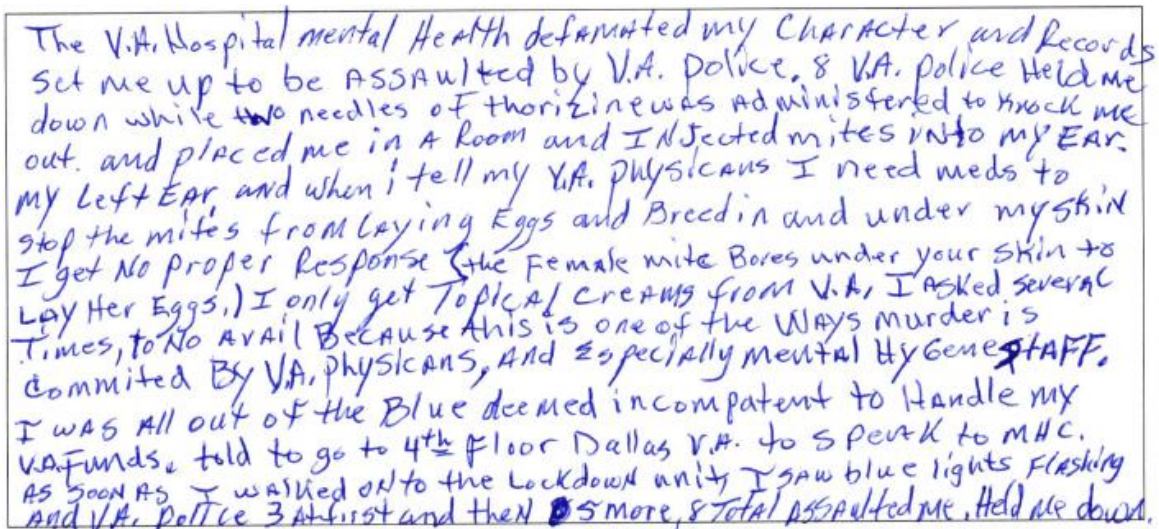 The V.A. Hospital mental Health defamated my Character and Records
Set me up to be ASSAulted by V.A. police. 8 V.A. police Held me
down while two needles of thorizine was Administered to Knock me
out. and plAced me in A Room and INJected mites into my EAR.
my Left EAR, and when i tell my V.A. physicans I need meds to
stop the mites from LAying Eggs and Breedin and under my skin
I get No proper Response (the Female mite Bores under your skin to
LAy Her Eggs,) I only get Topical creAms from V.A, I Asked several
Times, to No AvAil BecAuse this is one of the WAys murder is
committed By V.A. physicAns, And Especially mental HyGene stAFF.
I wAs All out of the Blue deemed incompatent to HAndle my
V.A. Funds. told to go to 4th Floor Dallas V.A. to speAk to MHC.
AS SOON AS I wAlked onto the Lockdown unit, I SAw blue lights FlAshing
And V.A. police 3 At first and then 5 more, 8 Total ASSAulted me. Held me down.